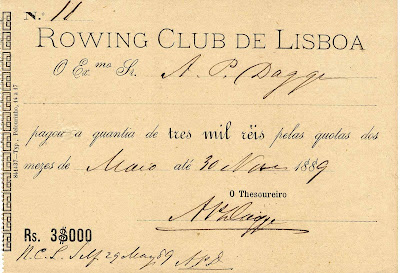 N.º 11
ROWING CLUB DE LISBOA
O Ex.mo Sr. A. P. Dagge
pagou a quantia de tres mil réis pelas quotas dos
mezes de Maio até 30 Nov. 1889
O Thesoureiro
Rs. 3$000
29 May 89